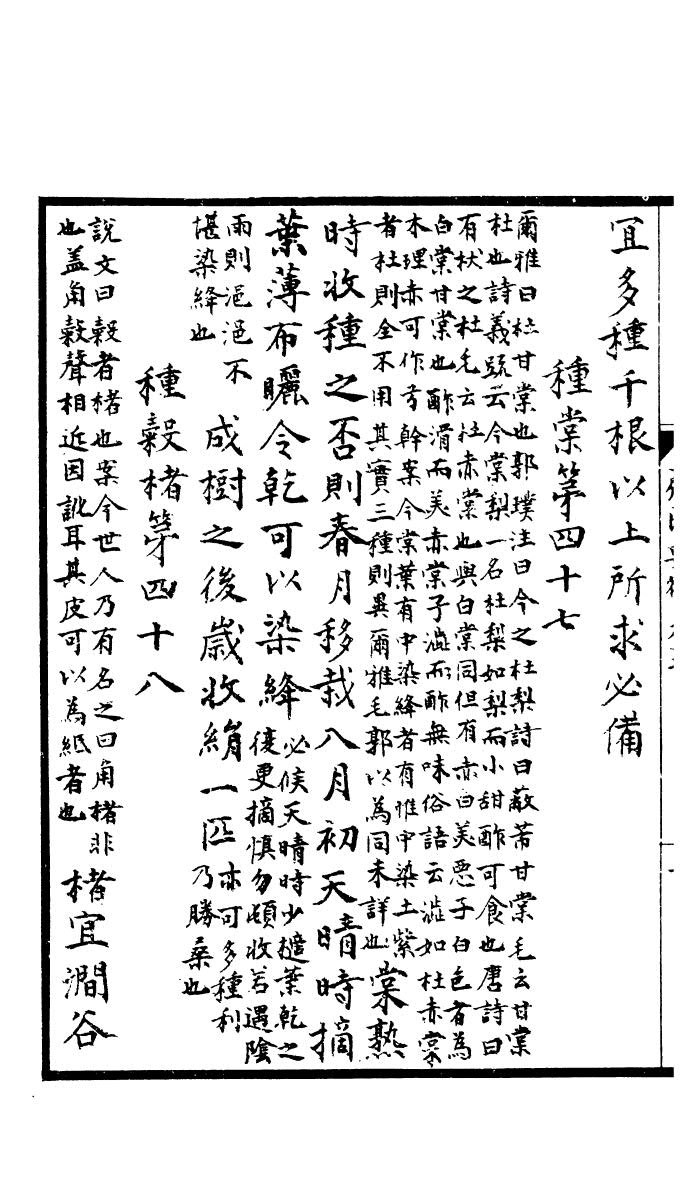 宜多種千根以上所求必備
種棠第四十七
爾雅曰杜甘棠也郭璞注曰今之杜梨詩曰蔽芾甘棠毛云甘棠
杜也詩義疏云今棠梨一名杜梨如梨而小甜酢可食也唐詩曰
有杕之杜毛云杜赤棠也與白棠同但有赤白美惡子白色者為
白棠甘棠也酢滑而美赤棠子澁而酢無味俗語云澁如杜赤棠
木理赤可作弓幹案今棠葉有中染絳者有惟中染土紫
者杜則全不用其實三種則異爾雅毛郭以為同未詳也
棠熟
時收種之否則春月移栽八月初天晴時摘
葉薄布曬令乾可以染絳
必候天晴時少擿葉乾之
復更摘慎勿頓收若遇陰
雨則浥浥不
堪染絳也
成樹之後歲收絹一匹
亦可多種利
乃勝桑也
種榖楮第四十八
說文曰榖者楮也案今世人乃有名之曰角楮非
也盖角榖聲相近因訛耳其皮可以為紙者也
楮宜澗谷